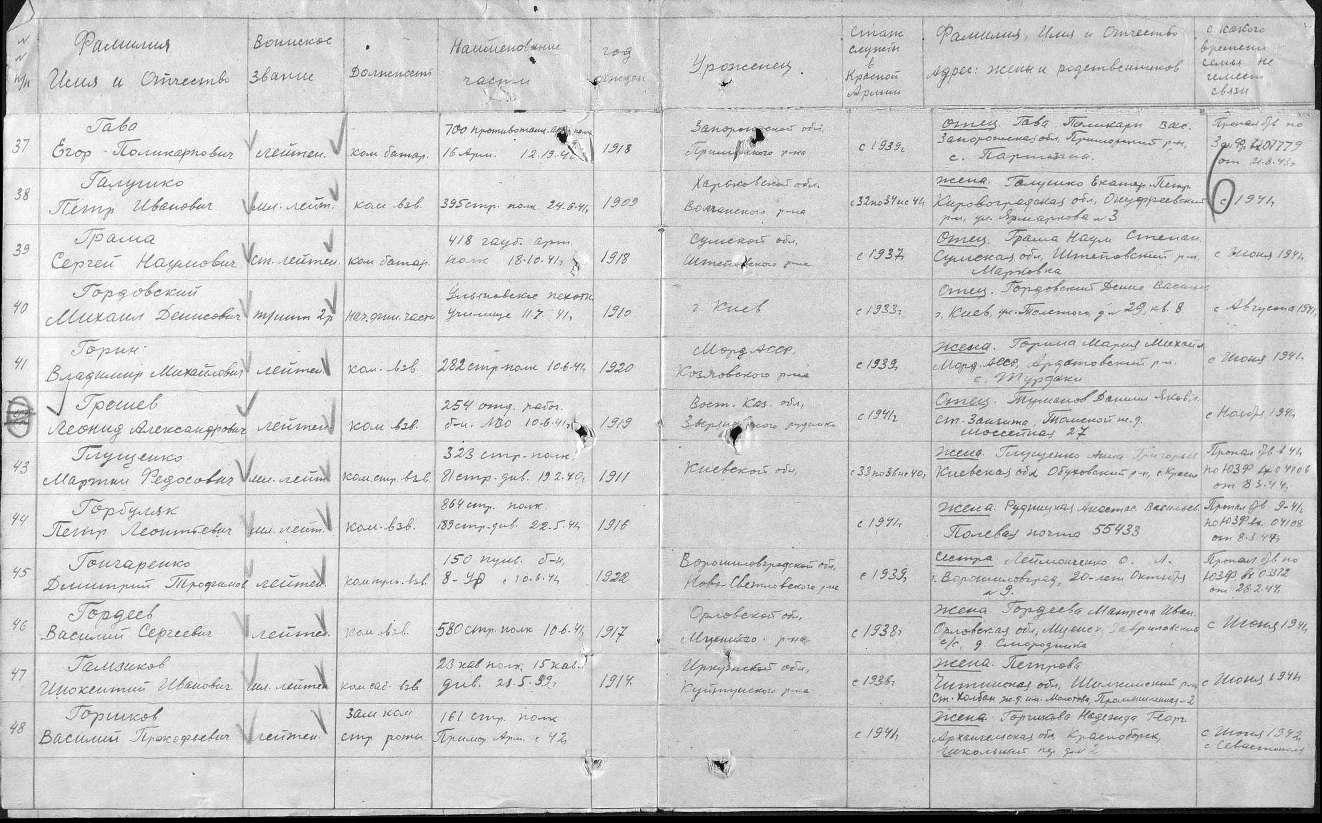 № № п/п
Фамилия Имя и Отчество
Воинское звание
Должность
Наименование части
год рожден
Уроженец
Стаж службы в Красной Армии
Фамилия, Имя и Отчество
Адрес: жены и родственников
с какого времени семья не имеет связи
37
Гава
Егор Поликарпович
лейтен.
ком. батар.
700 противотанк. арт. полк
16 Арм. 12.19.41
1918
Запорожской обл.
Приморского р-на
с 1939г
Отец Гава Поликарп Вас.
Запорожская обл. Приморский р-н,
с. Партизана.
Пропал б/в по
от 21.8.43г
38
Галушко
Петр Иванович
мл. лейт.
ком. взв
395 стр. полк 24.6.41г
1909
Харьковской обл.
Волчанского р-на
с 32 по 34 и с 41г
Жена. Галушко Екатер. Петр
Кировоградская обл, Онуфриевский
р-н, ул. Ярмаркова №3
с 1941г
39
Грама
Сергей Наумович
ст. лейтен.
ком. батар.
418 гауб. арт.
полк 18-10.41г
1918
Сумской обл,
Штеповского р-на
с 1937
Отец. Грама Наум Степан.
Сумская обл, Штеповский р-н
Марковка
с Июня 1941г
40
Гордовский
Михаил Денисович
Нач. хим. части
Ульяновское пехотн
училище 41г
1910
г. Киев
с 1933г
Отец. Гордовский Денис
г. Киев, д. 29, кв. 8
с Августа 1941г
41
Горин
Владимир Михайлович
лейтен
ком. взв.
282 стр полк 10.6.41г
1920
Морд АССР.
Козловского р-на
с 1939г
Жена. Горина Мария Михайл
Морд. АССР, Ардатовский р-н
с. Турдаки
с Июня 1941г
Грешев
Леонид Александрович
лейтен
ком взв.
254 отд. рабоч.
б-н. 10-6.41г
1919
Вост. Каз. обл,
с 1941г
Отец. Туманов Даниил Яковл.
Ст. Томской ж.д.
27
с Ноября 1941г
43
Глущенко
Мартын Федосович
мл. лейт
ком. стр. взв.
323 стр. полк
81 стр. див. 19.2.40г
1911
Киевской обл,
с 33 по 36 и с 40г
Жена. Глущенко Анна Григорьев
Киевская обл. Обуховский р-н,
Пропал б/в в 41г
от 8.3.44г.
44
Горбуляк
Петр Леонтьевич
мл. лейт
ком. взв.
864 стр. полк.
189 стр. див. 22.5.41г
1916
с 1941г
Жена. Рудницкая Анастас Васильев.
Полевая почта 55433
Пропал б/в 9-41г
от 8-3.44г
45
Гончаренко
Дмитрий Трофимов
лейтен.
ком. пул. взв.
150 пулем. б-н,
8-УР с 10.6.41г
1922
Ворошиловградской обл,
Ново-Светловского р-на
с 1939г
Сестра Леймонченко О. Л.
г. Ворошиловград, 20-лет Октября
№ 9.
Пропал б/в по
от 28.2.44.
46
Гордеев
Василий Сергеевич
лейтен.
ком. взв.
580 стр. полк 10.6.41г
1917
Орловской обл,
Мценского р-на
с 1938г
Жена Гордеева Матрена Иван.
Орловская обл, Мценск, Гавриловский
с/с. д Смородинка
с Июня 1941г
47
Гамзиков
Инокентий Иванович
мл. лейтен
ком. саб. взв.
23 кав полк, 15 кав.
див. 29.5.39г.
1914
Иркутской обл,
Куйтунского р-на
с 1936г
Жена Петрова
Читинская обл, Шилкинский р-н
Ст. Холбон ж.д. им. Молотова, Промышленная-2
с Июня 1941г
48
Горшков
Василий Прокофьевич
лейтен.
Зам ком
стр роты
161 стр. полк
Примор Арм. с 42г
с 1941г
Жена Горшкова Надежда Георг.
Архангельская обл, Красноборск,
Школьный пер. д. № 2
с Июня 1942
с Севастополя